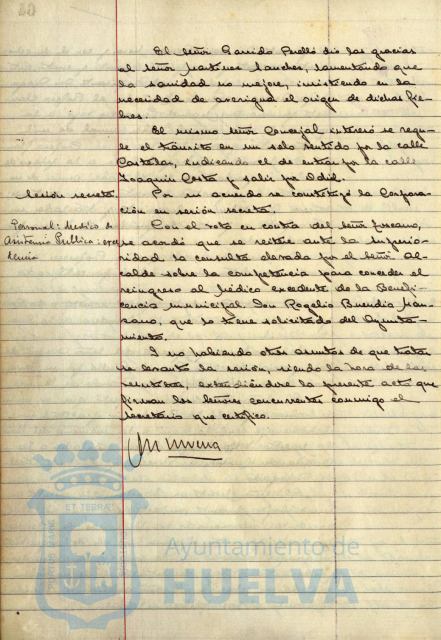 El Señor Garrido Perelló dió las gracias
al Señor Martinez Sanchez, lamentando que
la sanidad no mejore, insistiendo en la
necesidad de averiguar el origen de dichas fie-
bres.
El mismo Señor Concejal interesó se regu-
le el tránsito en un solo sentido por la calle
Castelar, indicando el de entrar por la calle
Joaquin Costa y salir por Odiel.
Sesión secreta.
Por su acuerdo se constituyó la Corpora-
ación en sesión secreta.
Personal: Medico de
Asistencia Publica: exce
dencia
Con el voto en contra del Señor
se acordó que se reitere ante la Superio-
ridad la consulta elevada por el Señor Al-
calde sobre la competencia para conceder el
reingreso al Médico excedente de la Benefi-
cencia municipal Don Rogelio Buendia Man-
zano, que lo tiene solicitado del Ayunta-
miento.
I no habiendo otros asuntos de que tratar
se levantó la sesión, siendo la hora de las
extendiéndose la presente acta que
firman los Señores concurrentes conmigo el
Secretario que certifico.
ET TERRAE
Ayuntamiento de
HUELVA